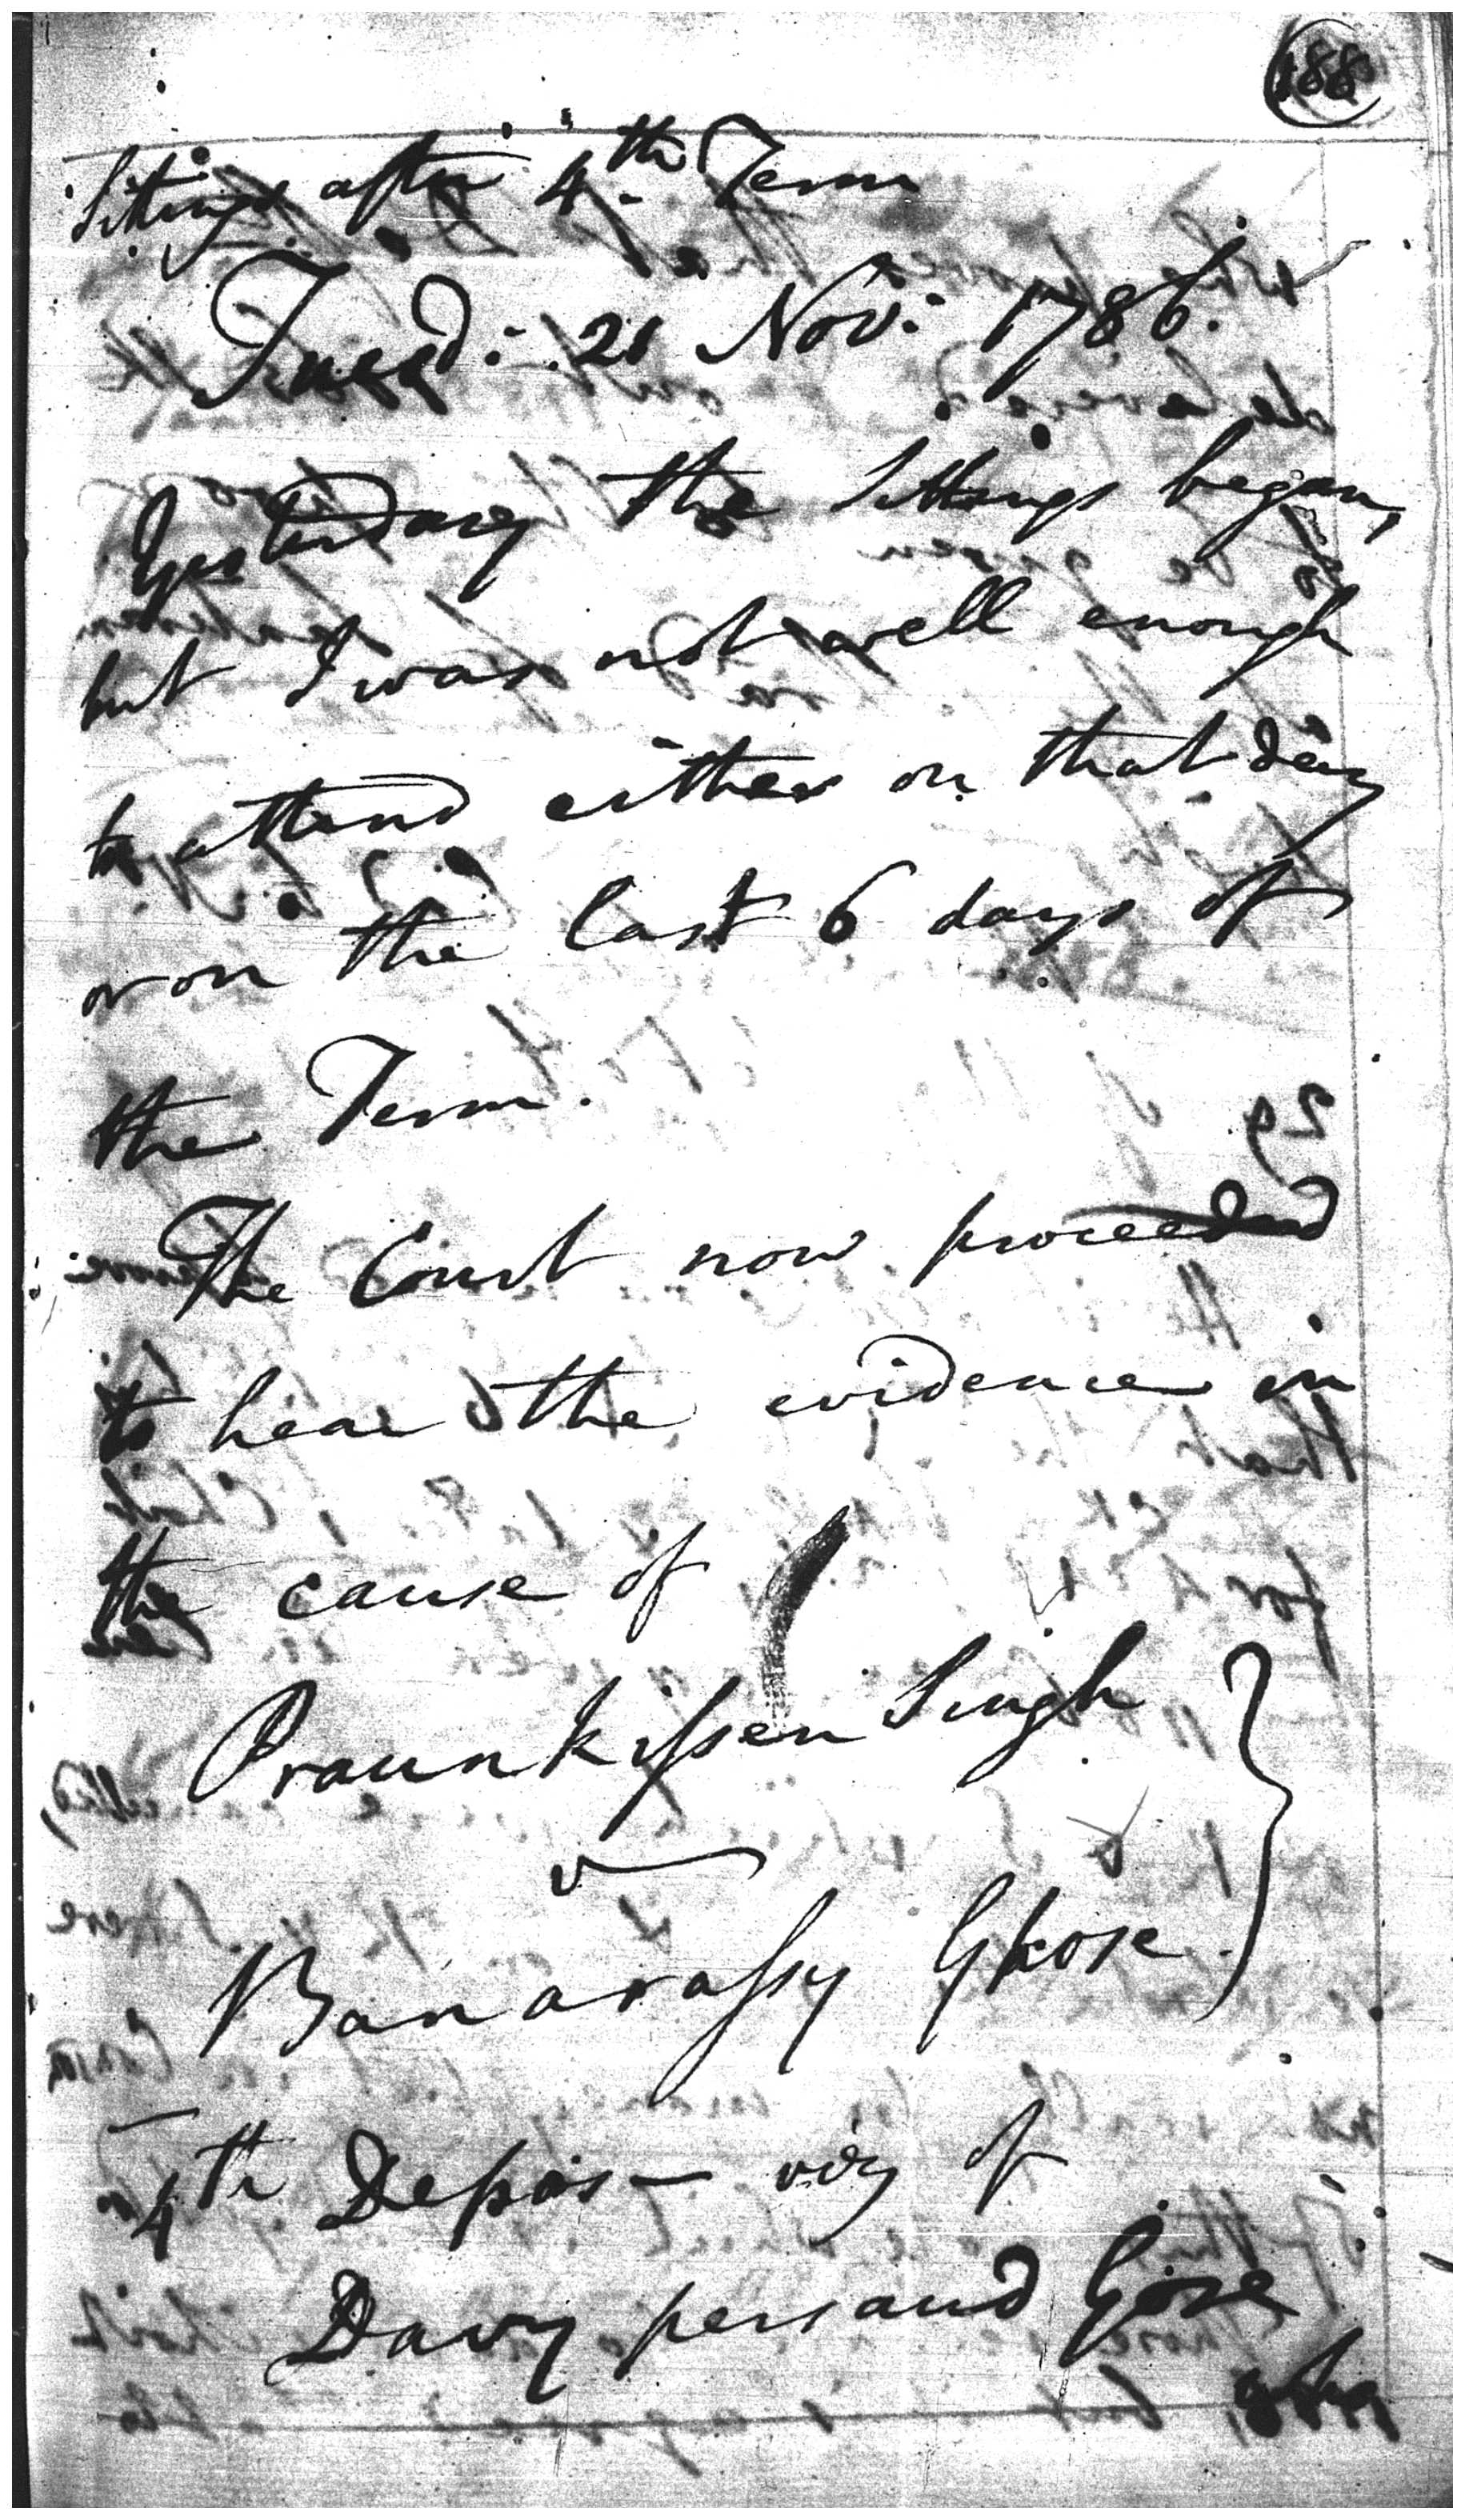 188
Sittings after 4th Term
Tuesd: 21 Nov: 1786.
Yesterday the Sittings began,
but I was not well enough
to attend either on that day
or on the last 6 days of
the Term.
The Court now proceeded
to hear the evidence in
the cause of
Praunkissen Singh
v
Banarassy Ghose.
4th Depos– of
Davy persaud Gose